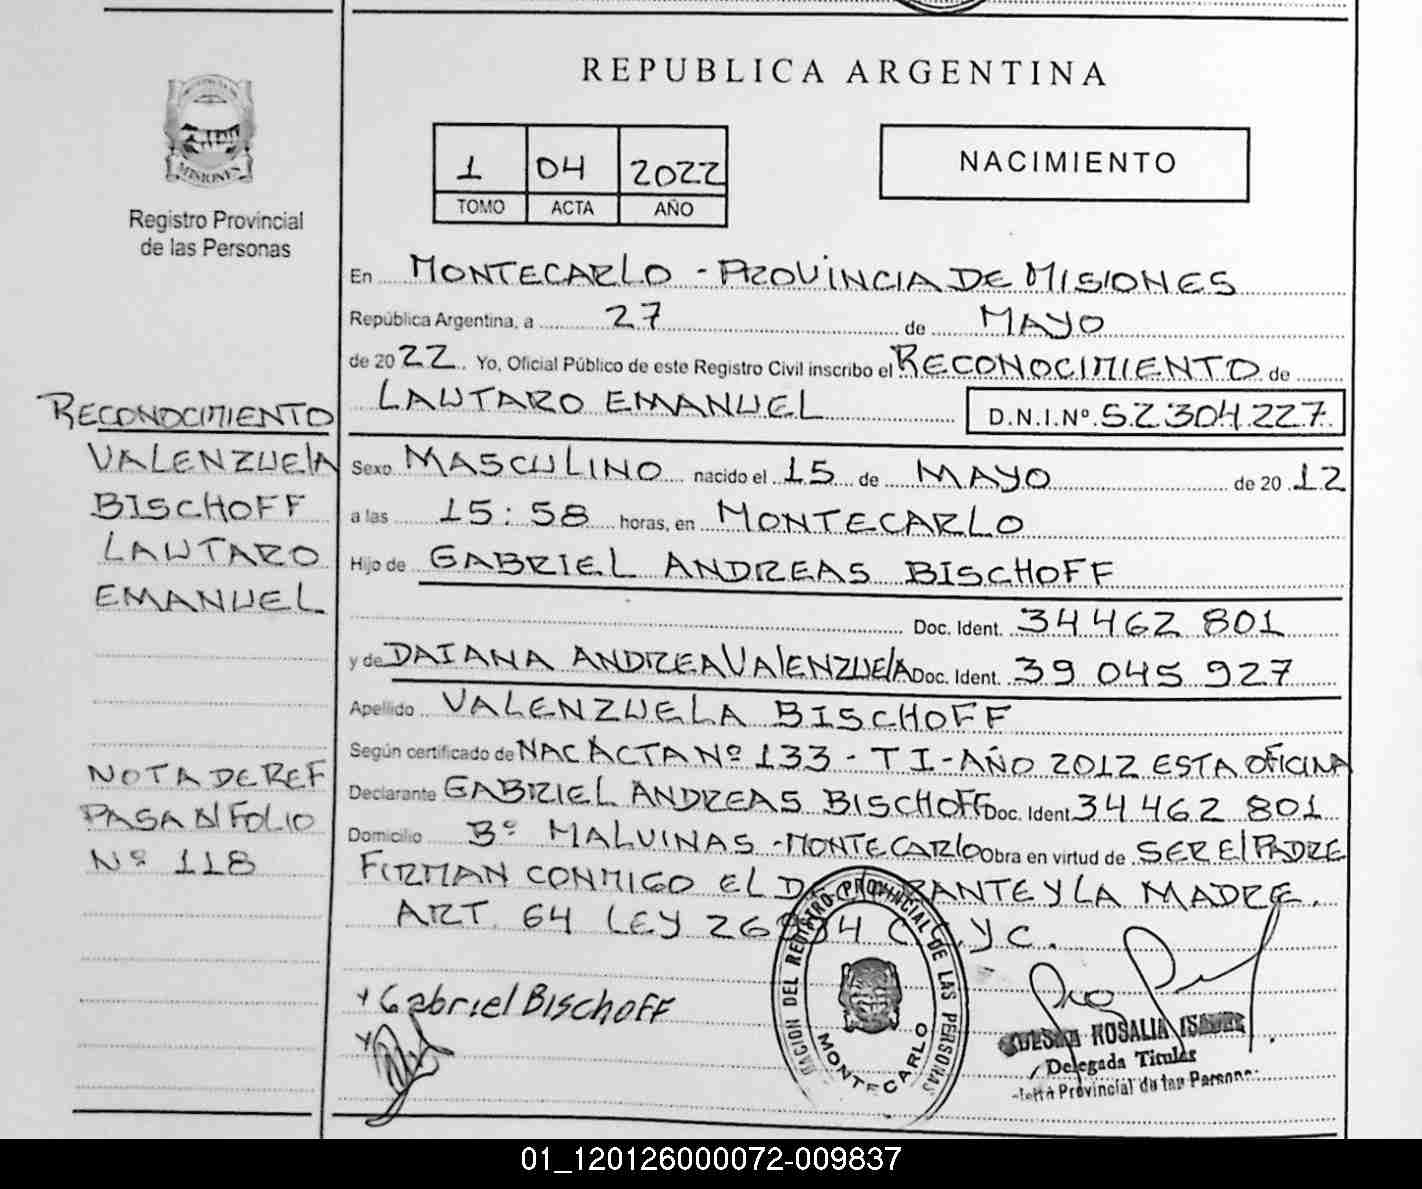 REPUBLICA ARGENTINA
MISIONES
Registro Provincial
de las Personas
1 04 2022
TOMO ACTA AÑO
NACIMIENTO
En MONTECARLO - PROVINCIA DE MISIONES
República Argentina, a 27 de MAYO
de 2022. Yo, Oficial Público de este Registro Civil inscribo el RECONOCIMIENTO de
LAUTARO EMANUEL D.N.I.Nº. 52 304 227
Sexo MASCULINO nacido el 15 de MAYO de 2012
a las 15:58 horas, en MONTECARLO
Hijo de GABRIEL ANDREAS BISCHOFF
Doc. Ident. 34 462 801
y de DAIANA ANDREA VALENZUELA Doc. Ident. 39 045 927
Apellido VALENZUELA BISCHOFF
Según certificado de NAC ACTA Nº 133 - T I - AÑO 2012 ESTA OFICINA
Declarante GABRIEL ANDREAS BISCHOFF Doc. Ident. 34 462 801
Domicilio Bº MALVINAS - MONTECARLO Obra en virtud de SER El PADRE
FIRMAN CONMIGO EL DECLARANTE Y LA MADRE.
ART. 64 LEY 26994 C.C. y C.
RECONOCIMIENTO
VALENZUELA
BISCHOFF
LAUTARO
EMANUEL
NOTA DE REF
PASA Al FOLIO
Nº 118
Gabriel Bischoff
DEL REGISTRO PROVINCIAL DE LAS PERSONAS
MONTECARLO
ROSALIA
Delegada Titular
Provincial de las Personas
01_120126000072-009837